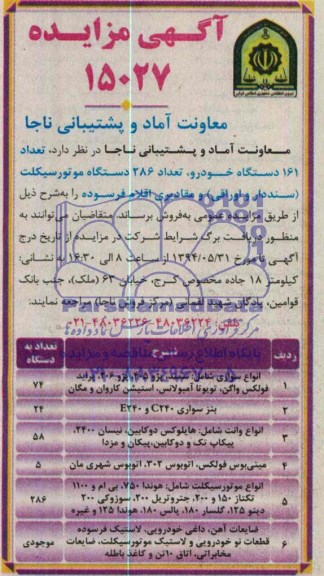 آگهی مزایده
۱۵۰۲۷
معاونت آماد و پشتیبانی ناجا
معاونت آماد و پشتیبانی ناجا در نظر دارد، تعداد
۱۶۱ دستگاه خودرو، تعداد ۲۸۶ دستگاه موتورسیکلت
(سنددار و اوراقی) و مقادیری اقلام فرسوده را به‌شرح ذیل
از طریق مزایده عمومی به‌فروش برساند. متقاضیان می‌توانند به
منظور دریافت برگ شرایط شرکت در مزایده از تاریخ درج
آگهی تا مورخ ۱۳۹۴/۰۵/۳۱ از ساعت ۸ الی ۱۶:۳۰ به نشانی:
کیلومتر ۱۸ جاده مخصوص کرج، خیابان ۶۳ (ملک)، جنب بانک
قوامین، پادگان شهید لقمانی (مرکز فروش ناجا) مراجعه نمایند:
تلفن: ۴۸۰۳۶۲۲۴-۴۸۰۳۶۲۲۶-۰۲۱
ردیف شرح تعداد به دستگاه
۱ انواع سواری شامل: پراید
فولکس واگن، تویوتا آمبولانس، استیشن کاروان و مگان ۷۴
۲ بنز سواری C۲۴۰ و E۲۴۰ ۲۴
۳ انواع وانت شامل: هایلوکس دوکابین، نیسان ۲۴۰۰،
پیکاپ تک و دوکابین، پیکان و مزدا ۵۸
۴ مینی‌بوس فولکس، اتوبوس ۳۰۲، اتوبوس شهری مان ۵
۵ انواع موتورسیکلت شامل: هوندا ۷۵۰، بی ام و ۱۱۰۰
تکتاز ۱۵۰ و ۲۰۰، جتروتریل ۲۰۰، سوزوکی ۲۰۰
دینو ۱۲۵، گلسار ۱۸۰، پالس ۱۸۰، هوندا ۱۲۵ و غیره ۲۸۶
۶ ضایعات آهن، داغی خودرویی، لاستیک فرسوده
قطعات نو خودرویی و لاستیک موتورسیکلت، ضایعات
مخابراتی، اتاق ۱۰تن و کاغذ باطله موجودی